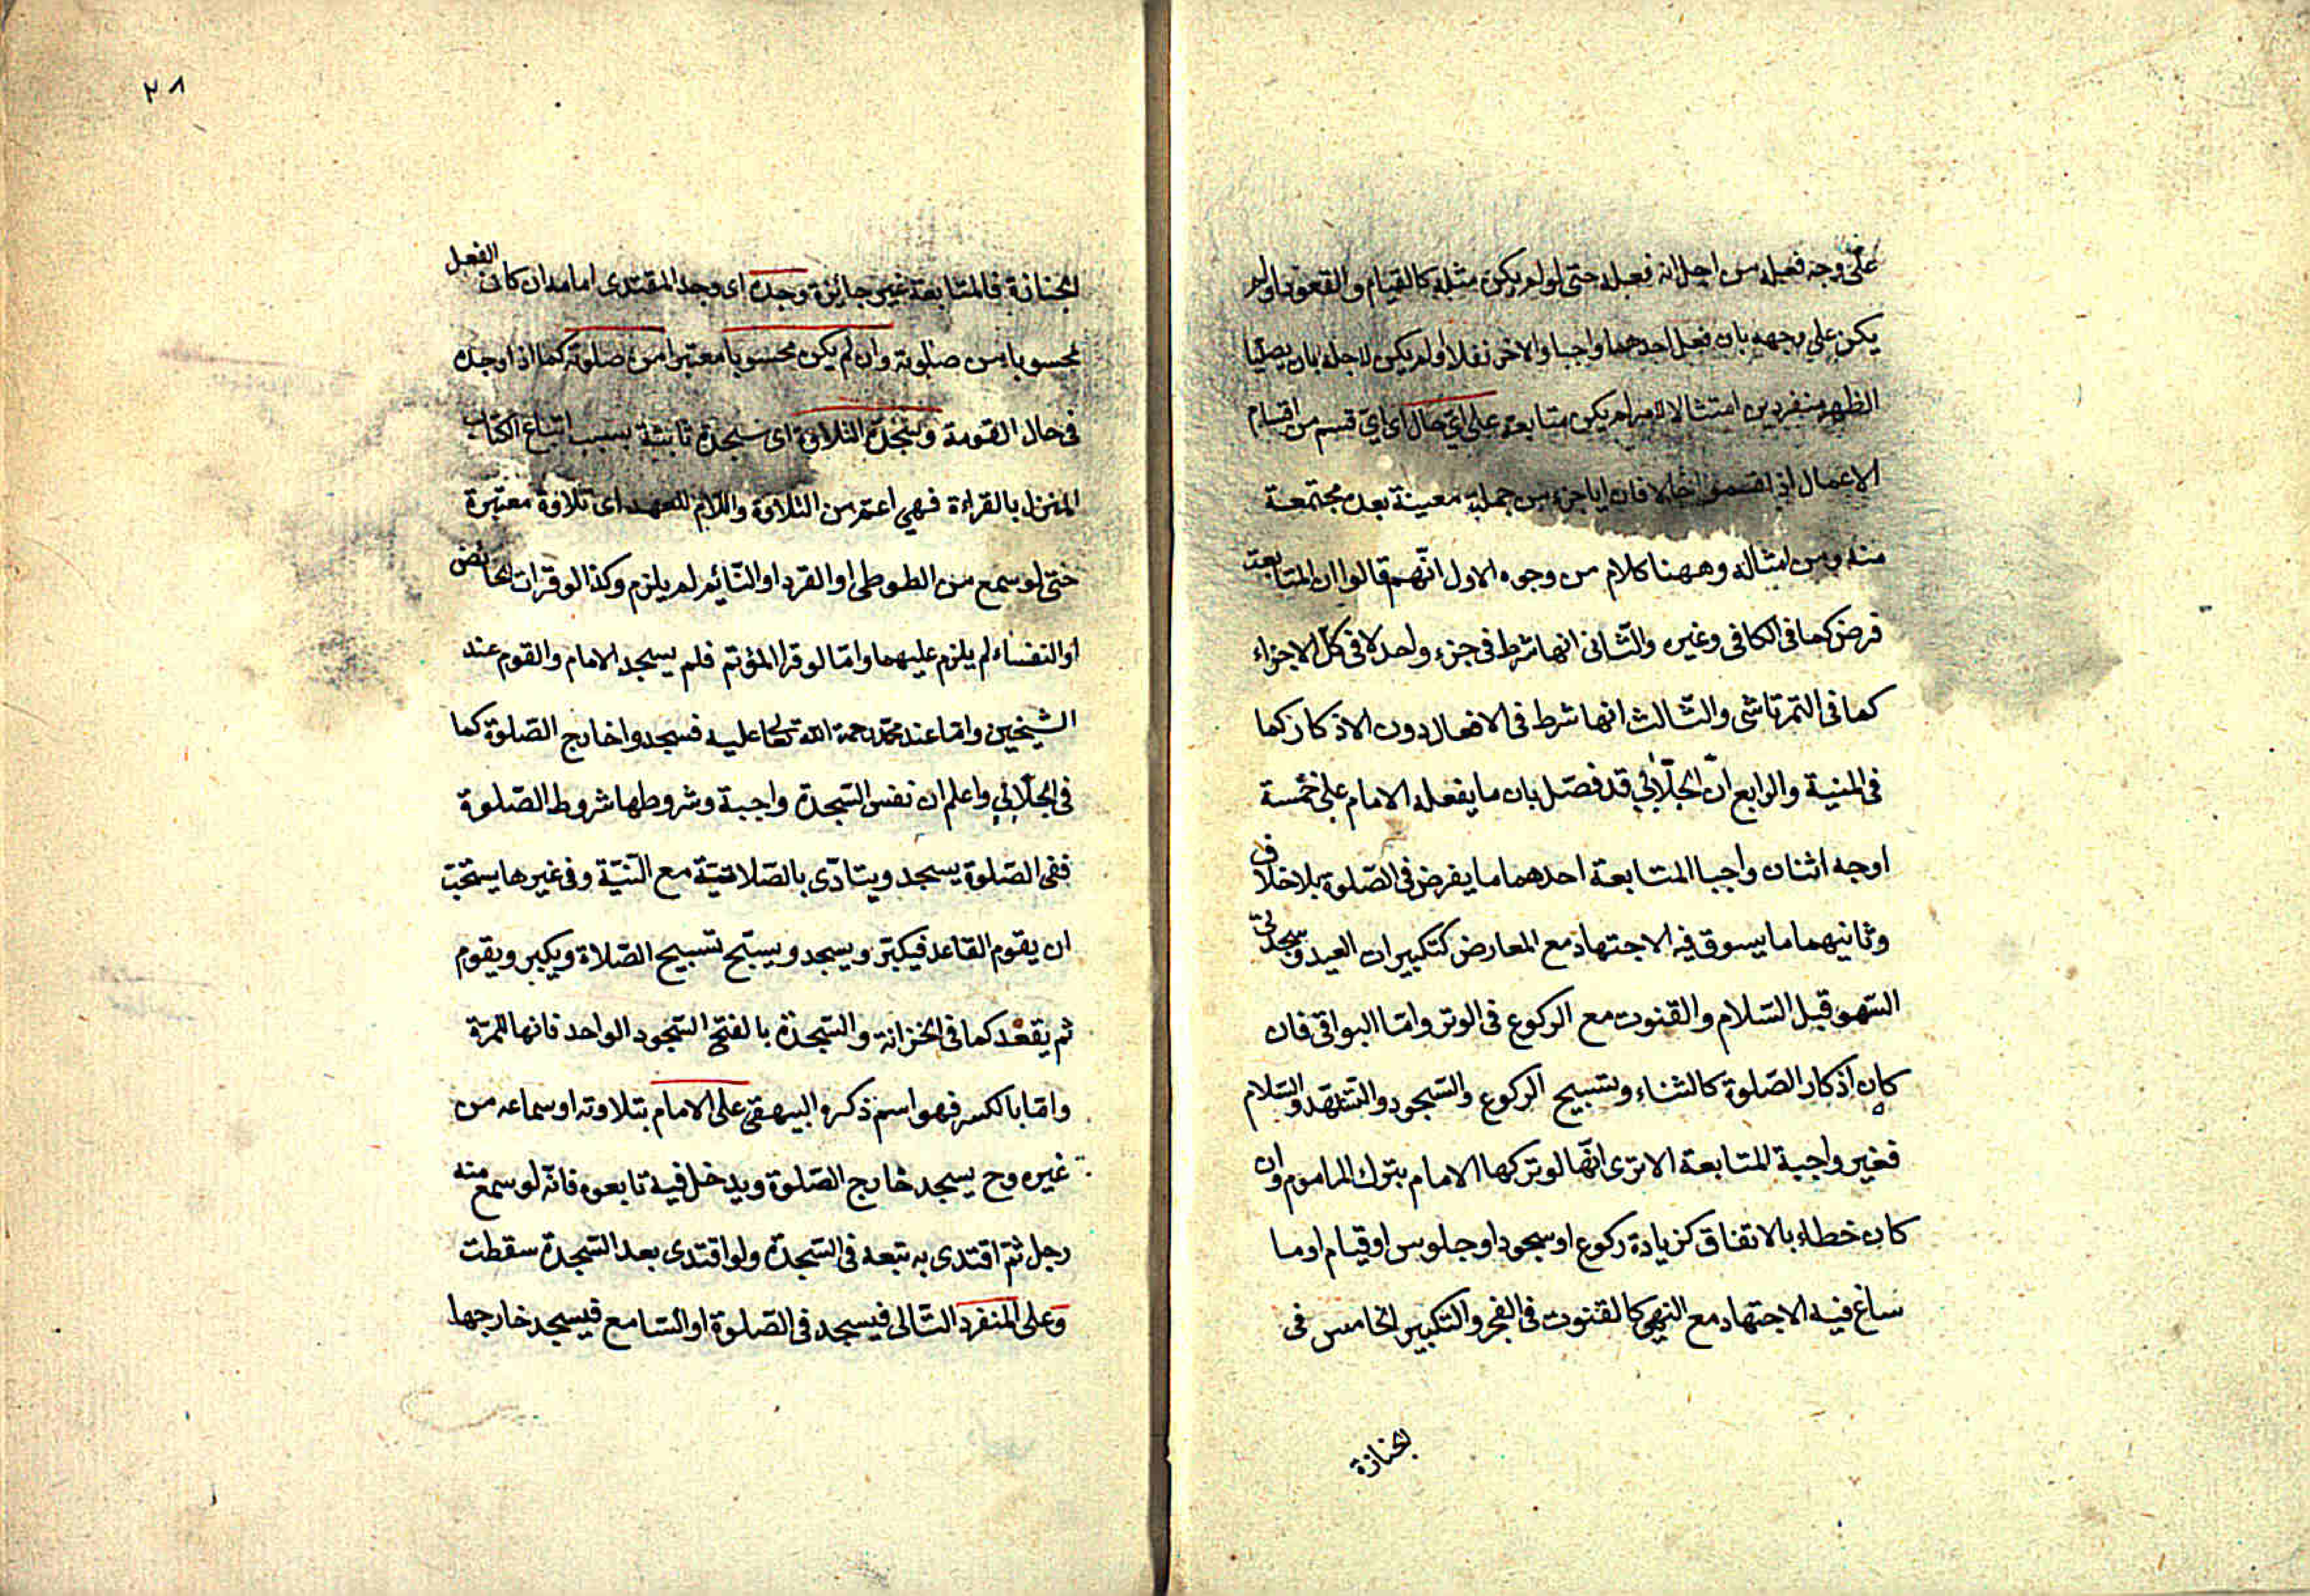 على وجه فعله من اجل انه فعله حتى لو لم يكن مثله كالقيام والقعود او لم
يكن على وجهه بان فعل احدهما واجبا والاخر نفلا او لم يكن لاجله بان يصليا
الظهر منفردين امتثالا للامر لم يكن متابعة على اي حال اي اي قسم من اقسام
الاعمال اي جزء من جملة معينة بعده مجتمعة
منه ومن امثاله وههنا كلام من وجوه الاول انّهم قالوا ان المتابعة
فرض كما فى الكافى وغيره والثّانى انها شرط فى جزء واحد لا فى كلّ الاجزاء
كما فى التمرتاشى والثّالث انها شرط فى الافعال دون الاذكار كما
فى المنية والرابع انّ الجلّابي قد فصّل بان ما يفعله الامام على خمسة
اوجه اثنان واجبا المتابعة احدهما ما يفرض فى الصّلوة بلا خلاف
وثانيهما ما يسوق فيه الاجتهاد مع المعارض كتكبيرات العيد وسجدتى
السّهو قبل السّلام والقنوت مع الركوع فى الوتر وامّا البواقى فان
كان اذكار الصّلوة كالثناء وتسبيح الركوع والسّجود والتشهّد والسّلام
فغير واجبة المتابعة الا ترى انّها لو تركها الامام بترك الماموم وان
كان خطاء بالاتفاق كزيادة ركوع او سجود او جلوس او قيام او ما
ساغ فيه الاجتهاد مع النهى كالقنوت فى الفجر والتكبير الخامس فى
الجنازة
٢٨
الجنازة فالمتابعة غير جائزة وجده اى وجد المقتدى امامه ان كان الفعل
محسوبا من صلوته وان لم يكن محسوبا معتبرا من صلوته كما اذا وجده
فى حال القومة وسجدة التلاوة اى سجدة ناشئة بسبب اتباع الكتاب
المنزل بالقراءة فهى اعتم من التلاوة واللّام للعهد اى تلاوة معتبرة
حتى لو سمع من الطوطى او القرد او النّائم لم يلزم وكذا لو قرات الحائض
او النفساء لم يلزم عليهما وامّا لو قرا المؤتم فلم يسجد الامام والقوم عند
الشيخين وامّا عند محمّد رحمة اللّه تعالى عليه فسجدوا خارج الصّلوة كما
فى الجلّابي واعلم ان نفس السّجدة واجبة وشروطها شروط الصّلوة
ففى الصّلوة يسجد ويتادّى بالصّلاتيّة مع النّيّة وفى غيرها يستحبّ
ان يقوم القاعد فيكبّر ويسجد ويسبّح تسبيح الصّلاة ويكبر ويقوم
ثم يقعد كما فى الخزانة والسّجدة بالفتح السّجود الواحد فانها للمرّة
وامّا بالكسر فهو اسم ذكره البيهقى على الامام بتلاوته او سماعه من
غيره وح يسجد خارج الصّلوة ويدخل فيه تابعوه فانّه لو سمع منه
رجل ثمّ اقتدى به تبعه فى السّجدة ولو اقتدى بعد السّجدة سقطت
وعلى المنفرد التّالى فيسجد فى الصّلوة او السّامع فيسجد خارجها